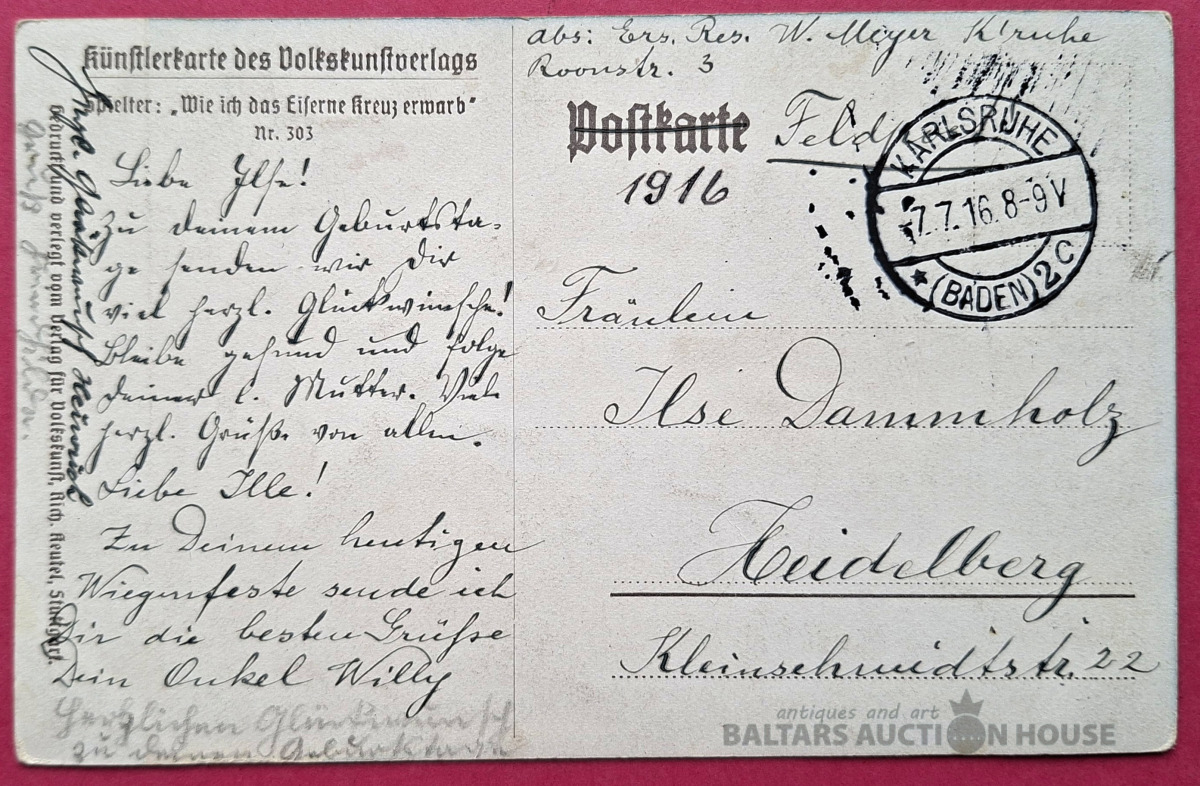 Künstlerkarte des Volkskunstverlags
Spielter: „Wie ich das Eiserne Kreuz erwarb"
Nr. 303
Liebe Ilse!
Zu deinem Geburtsta-
ge senden wir dir
viel herzl. Glückwünsche!
Bleibe gesund und folge
deiner l. Mutter. Viele
herzl. Grüße von allen.
Liebe Ille!
Zu Deinem heutigen
Wiegenfeste sende ich
Dir die besten Grüße
Dein Onkel Willy
Herzlichen Glückwunsch
zu deinem Geburtstage
Heinrich
Gedruckt und verlegt vom Verlag für Volkskunst, Rich. Keutel, Stuttgart.
Abs: Ers. Res. W. Meyer K'ruhe
Roonstr. 3
Postkarte
1916
KARLSRUHE
7.7.16.8-9V
★ (BADEN) 2C
Fräulein
Ilse Dammholz
Heidelberg
Kleinschmidtstr. 22
antiques and art
BALTARS AUCTION HOUSE